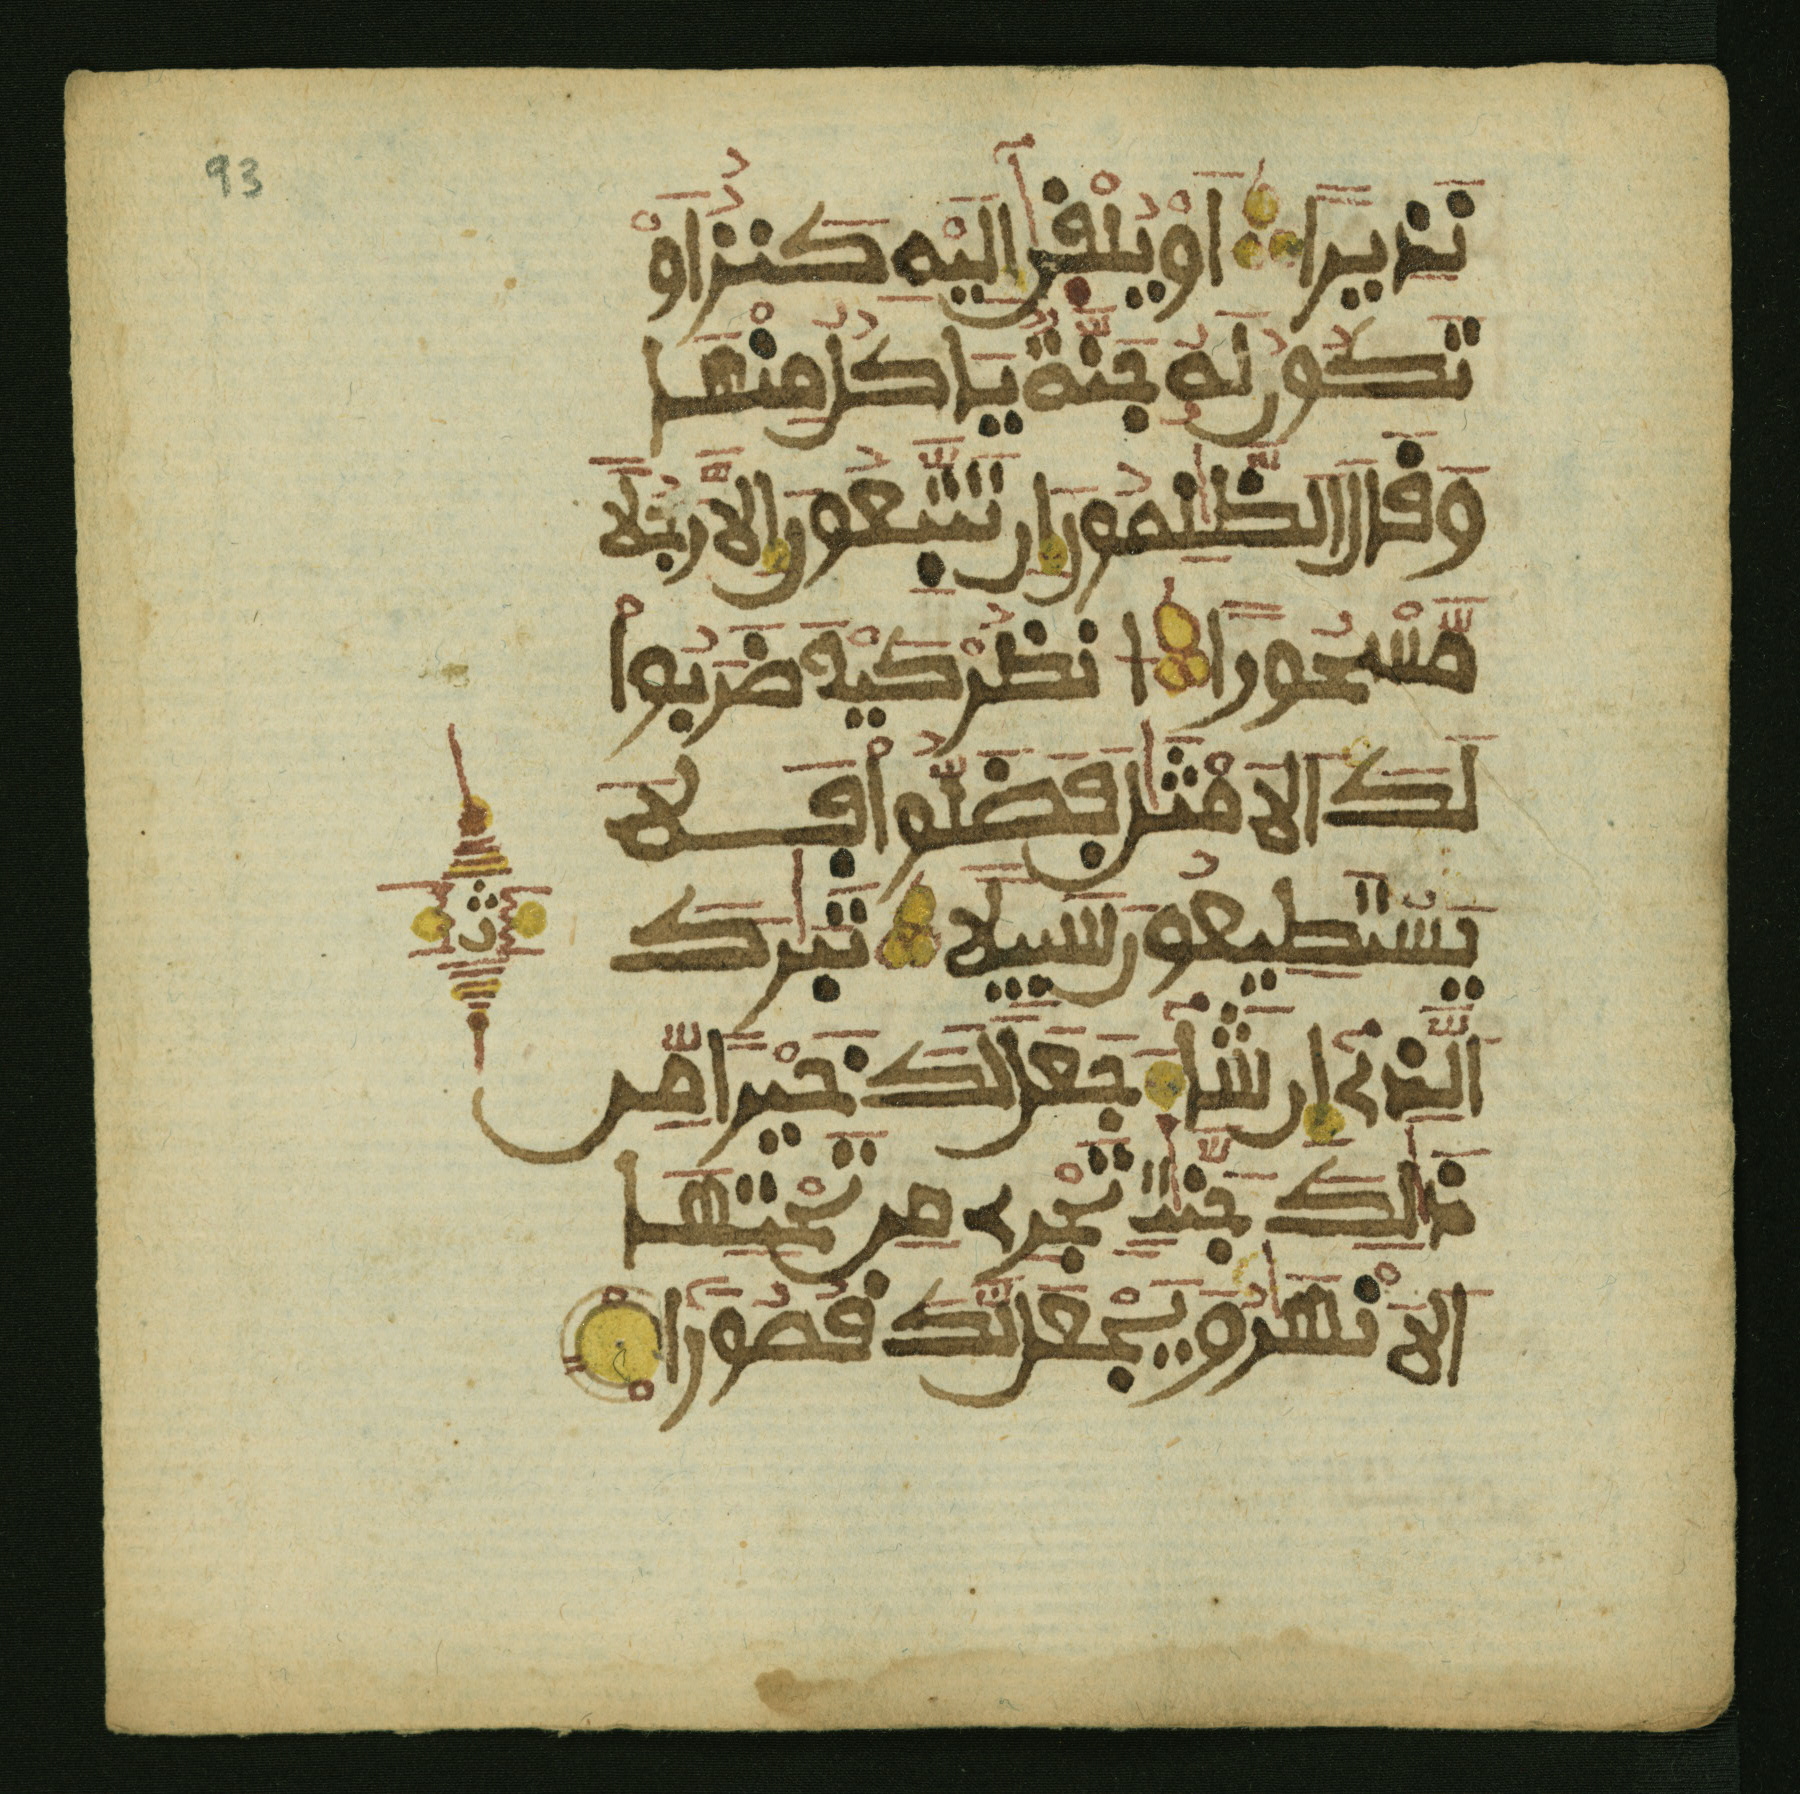 93
نَذِيرًا اَوْ يُلْقٰىٓ إِلَيْهِ كَنزٌ اَوْ
تَكُونُ لَهُۥ جَنَّةٌ يَاكُلُ مِنْهَا
وَقَالَ اَلظَّٰلِمُونَ إِن تَتَّبِعُونَ إِلَّا رَجُلًا
مَّسْحُورًا ا۟نظُرْ كَيْفَ ضَرَبُواْ
لَكَ اَلَامْثَٰلَ فَضَلُّواْ فَلَا
يَسْتَطِيعُونَ سَبِيلًا تَبَٰرَكَ
اَلَّذِےٓ إِن شَآءَ جَعَلَ لَكَ خَيْرًا مِّن
ذَٰلِكَ جَنَّٰتٍ تَجْرِے مِن تَحْتِهَا
اَلَانْهَٰرُ وَيَجْعَل لَّكَ قُصُورًا
ث